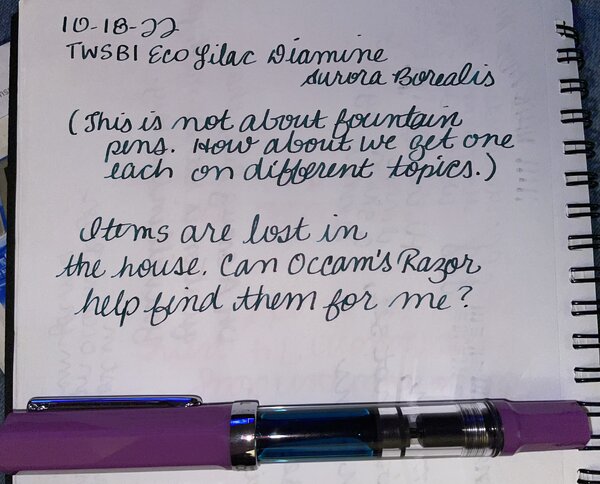 10-18-22
TWSBI Eco Lilac Diamine
Aurora Borealis
(This is not about fountain
pens. How about we get one
each on different topics.)
Items are lost in
the house. Can Occam's Razor
help find them for me?